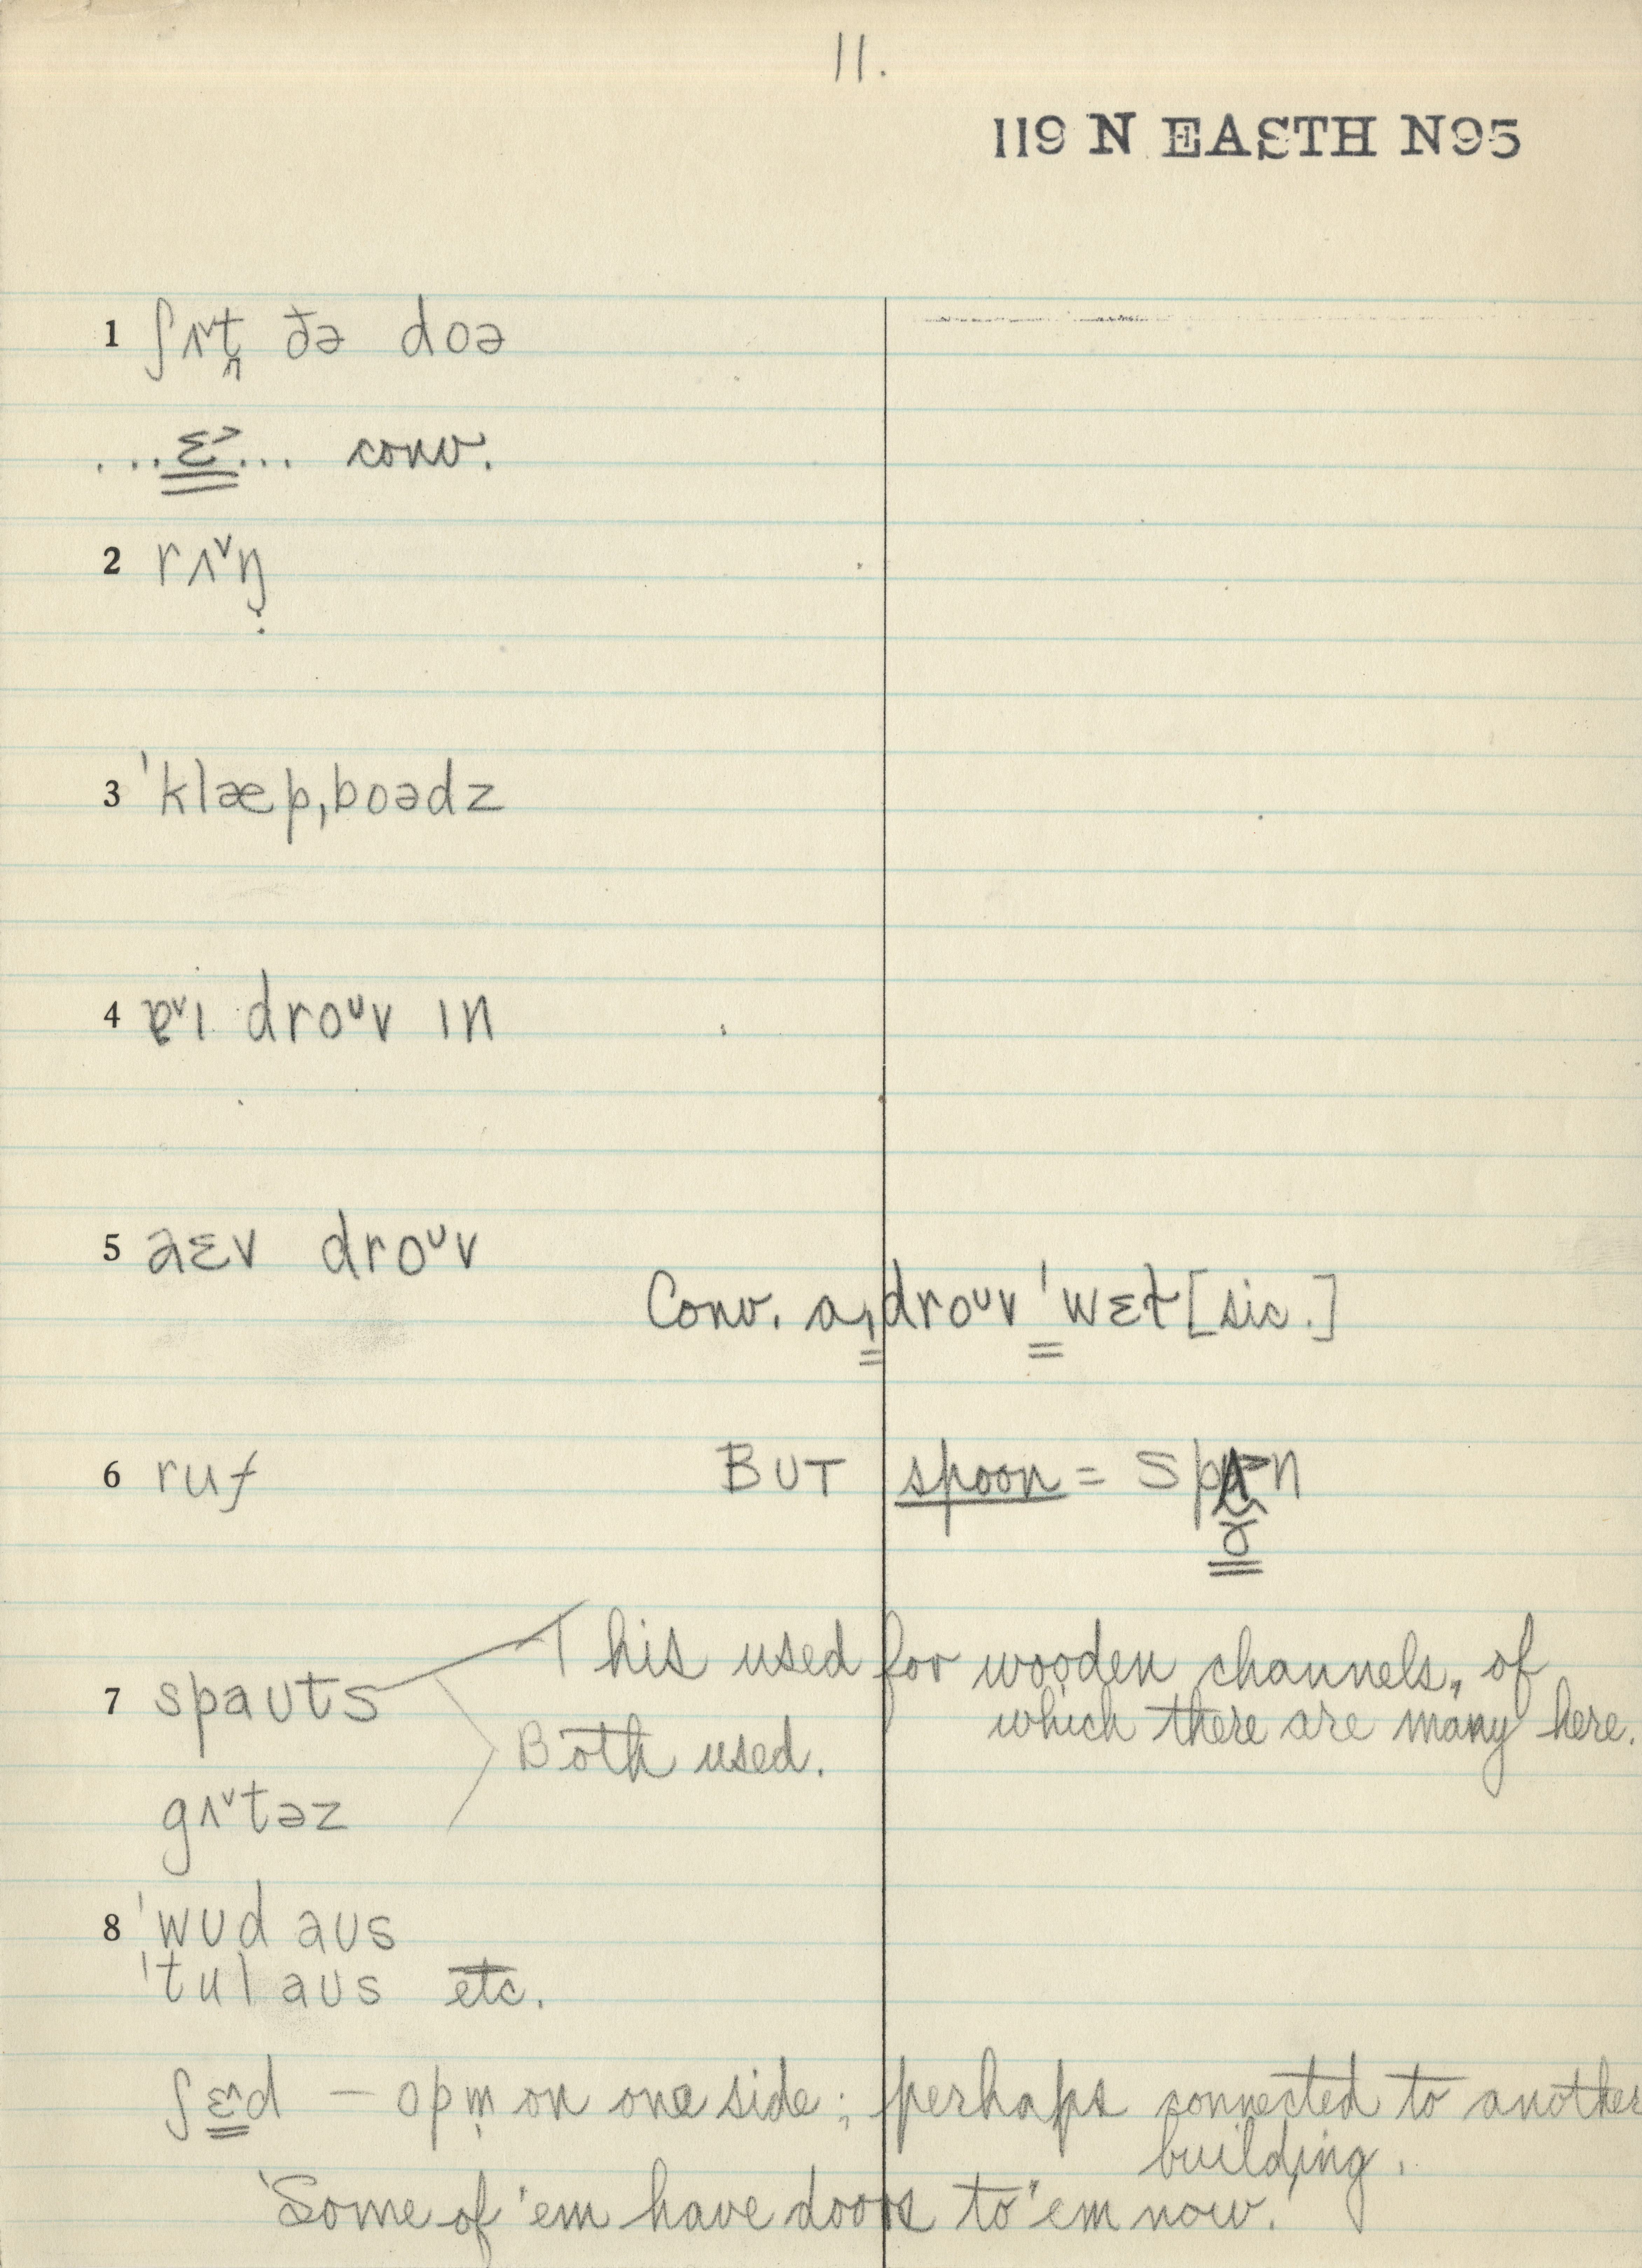 11.
119 N EASTH N95
1 ʃʌ˅t̯ ðə doə
...ɛ˃... conv.
2 rʌ˅ŋ̣
3 ˈklæpˌboədz
4 ɐ˅ɪ droᴜv ɪn
5 aɛv droᴜv
Conv. aɪ droᴜv ˈwɛt [sic.]
6 ruf BUT spoon =
7 spaʊts This used for wooden channels, of
which there are many here.
Both used.
gʌ˅təz
8 ˈwʊd aʊs
ˈtul aʊs etc.
ʃɛ˄d — opm̩ on one side; perhaps connected to another
building.
'Some of 'em have doors to 'em now.'